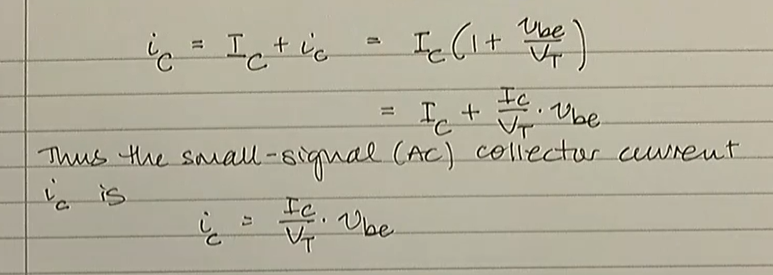 i_C = I_C + i_c = I_C (1 + v_be/V_T)
= I_C + I_C/V_T · v_be
Thus the small-signal (AC) collector current
i_c is
i_c = I_C/V_T · v_be